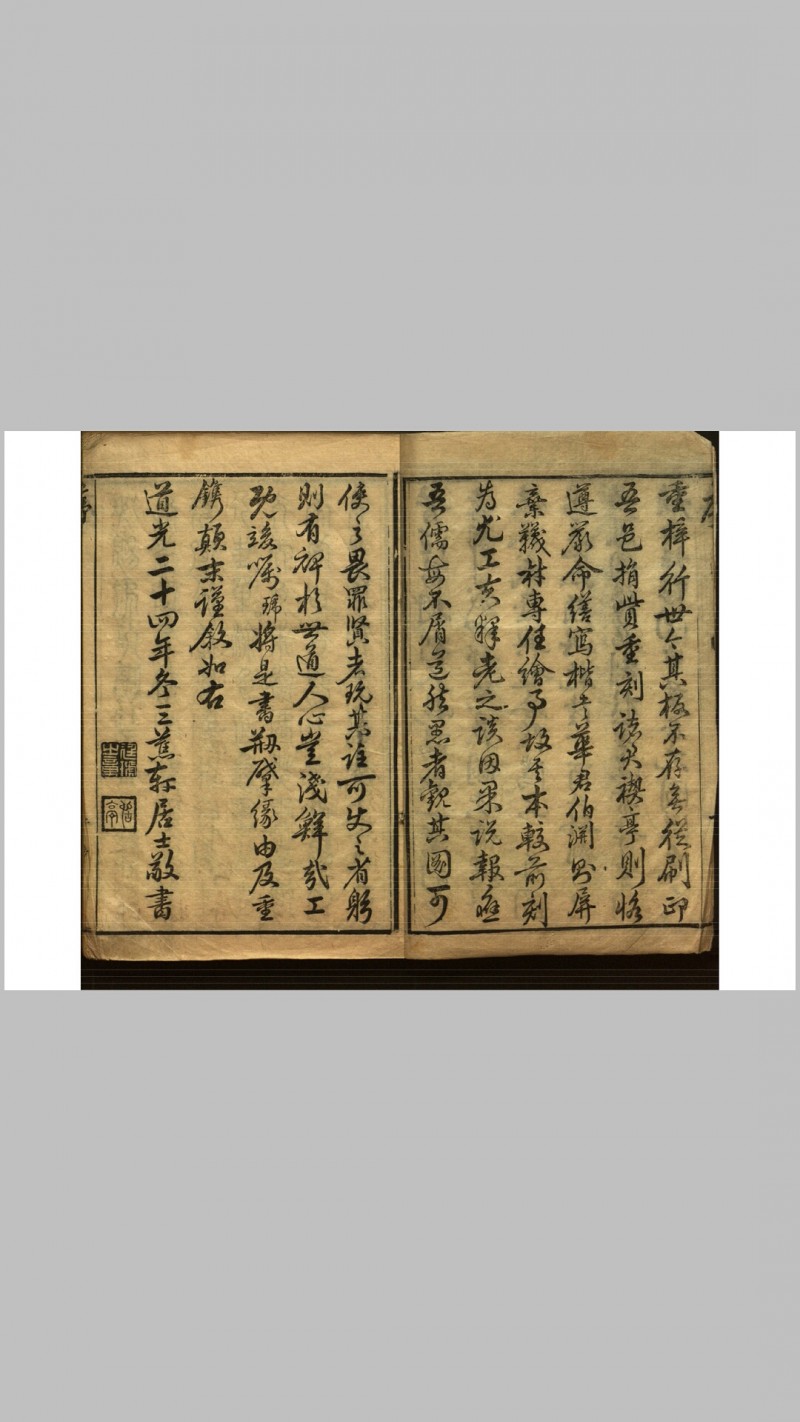 重梓行世今其板不存無從刷印
吾邑捐貲重刻諸君禊亭則恪
遵嚴命繕寫楷書華君伯淵則屏
棄襪材專任繪事故是本較前刻
為尤工夫釋老之談因果說報應
吾儒每不屑道然愚者觀其圖可
使之畏罪賢者玩其註可使之省躬
則有裨於世道人心豈淺鮮哉工
既竣囑將是書刱肇緣由及重
鐫顛末謹敘如右
道光二十四年冬三蕉軒居士敬書
序